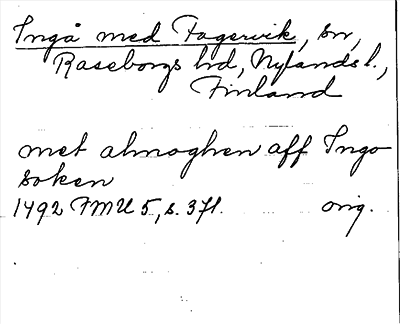 Ingå med Fagervik, sn,
Raseborgs hd, Nylands l.,
Finland
met almoghen aff Ingo
soken
1492 FMU 5, s. 3 f.
orig.